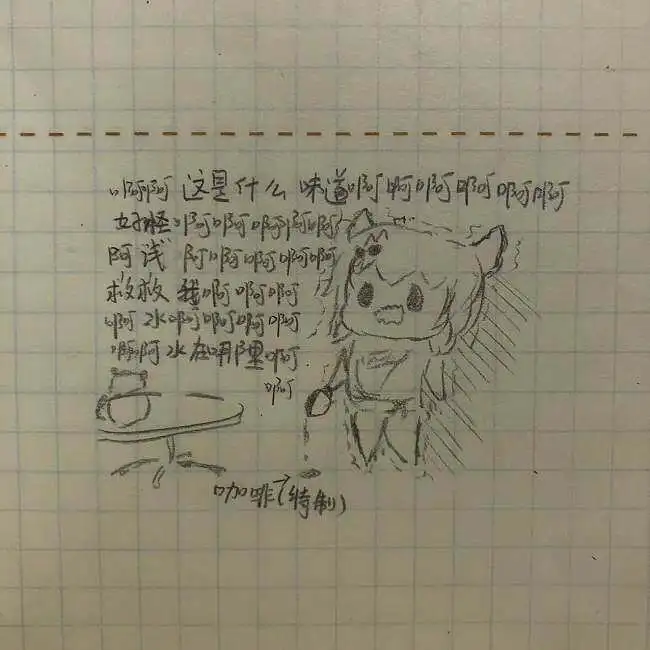 啊啊 这是什么 味道啊啊啊啊啊啊
好怪啊啊啊啊啊
阿浅 阿啊啊啊啊
救救 我啊啊啊
啊水啊啊啊啊
啊啊水在哪里啊
啊
咖啡(特制)